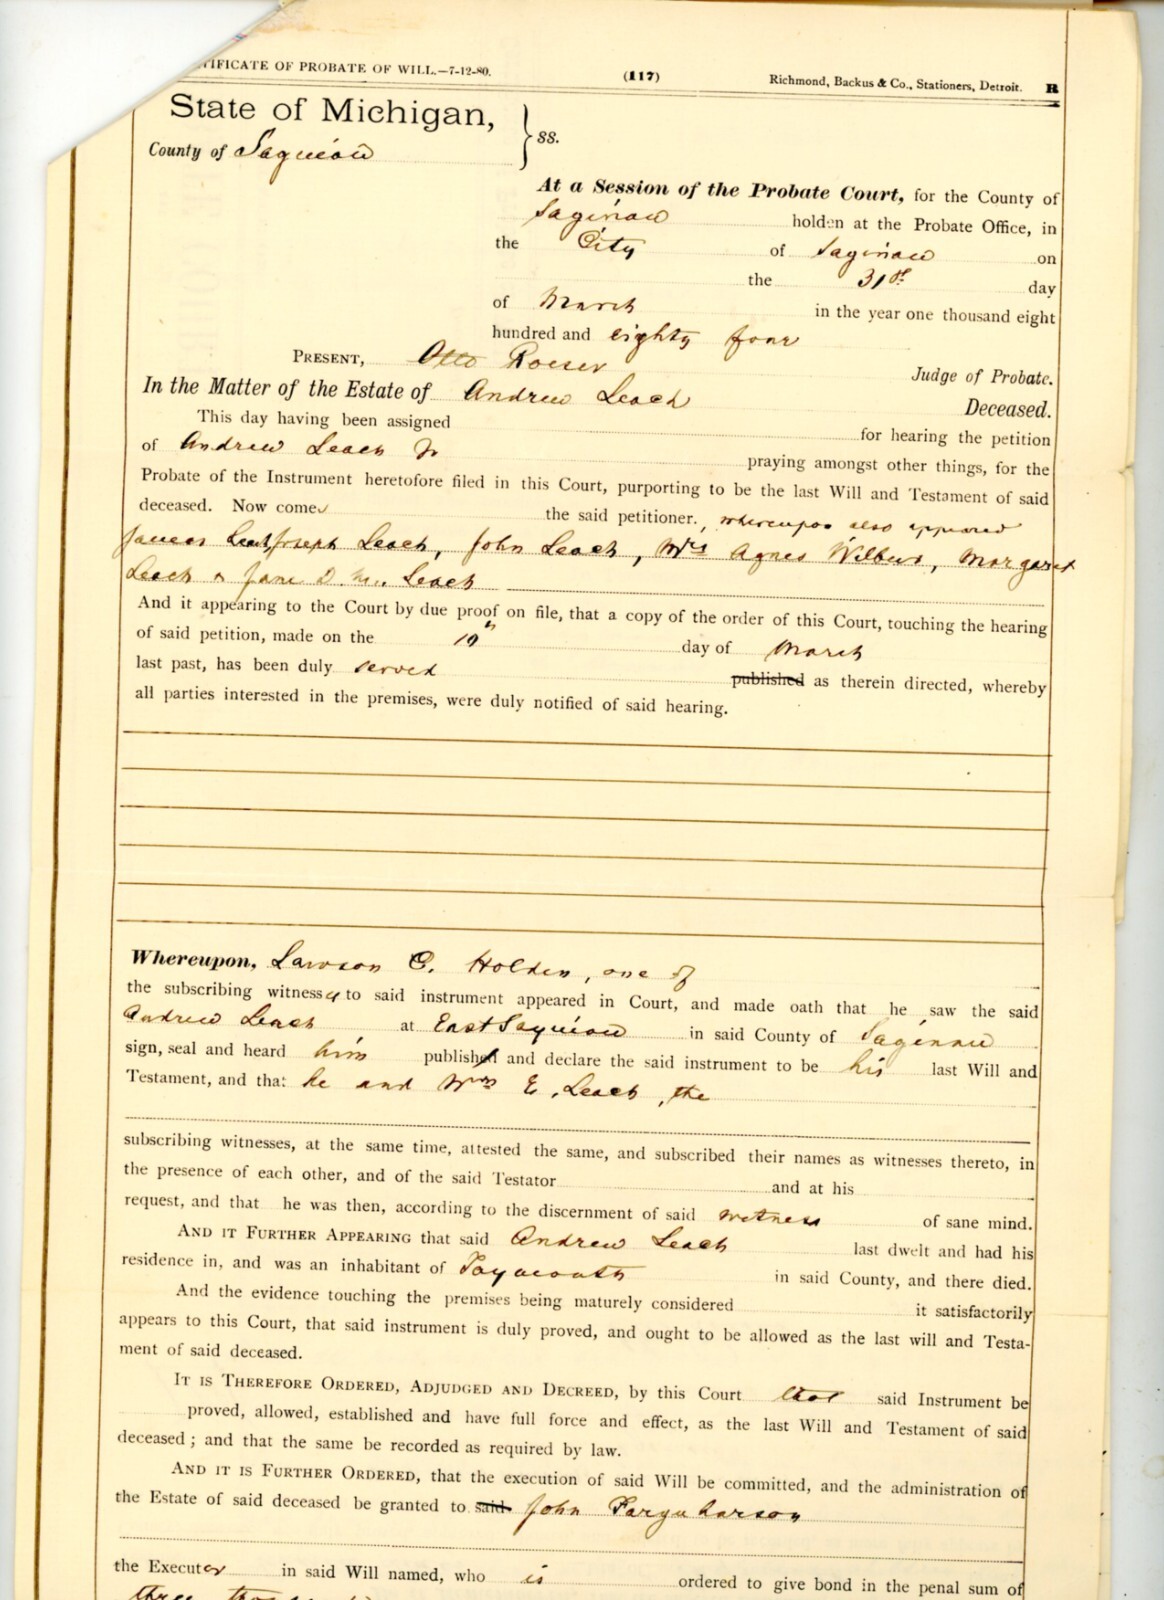 TIFICATE OF PROBATE OF WILL.—7-12-80. (117) Richmond, Backus & Co., Stationers, Detroit. R
State of Michigan,
County of Saginaw } ss.
At a Session of the Probate Court, for the County of
Saginaw holden at the Probate Office, in
the City of Saginaw on
the 31st day
of March in the year one thousand eight
hundred and eighty four
PRESENT, Otto Roeser Judge of Probate.
In the Matter of the Estate of Andrew Leach Deceased.
This day having been assigned for hearing the petition
of Andrew Leach Jr praying amongst other things, for the
Probate of the Instrument heretofore filed in this Court, purporting to be the last Will and Testament of said
deceased. Now comes the said petitioner., whereupon also appeared
James Leach, Joseph Leach, John Leach, Mrs Agnes Wilbur, Margaret
Leach & Jane D. Leach
And it appearing to the Court by due proof on file, that a copy of the order of this Court, touching the hearing
of said petition, made on the 10th day of March
last past, has been duly served published as therein directed, whereby
all parties interested in the premises, were duly notified of said hearing.
Whereupon, Lawson C. Holden, one of
the subscribing witnesses to said instrument appeared in Court, and made oath that he saw the said
Andrew Leach at East Saginaw in said County of Saginaw
sign, seal and heard him publish and declare the said instrument to be his last Will and
Testament, and that he and Wm E. Leach, the
subscribing witnesses, at the same time, attested the same, and subscribed their names as witnesses thereto, in
the presence of each other, and of the said Testator and at his
request, and that he was then, according to the discernment of said witness of sane mind.
AND IT FURTHER APPEARING that said Andrew Leach last dwelt and had his
residence in, and was an inhabitant of Taymouth in said County, and there died.
And the evidence touching the premises being maturely considered it satisfactorily
appears to this Court, that said instrument is duly proved, and ought to be allowed as the last will and Testa-
ment of said deceased.
IT IS THEREFORE ORDERED, ADJUDGED AND DECREED, by this Court that said Instrument be
proved, allowed, established and have full force and effect, as the last Will and Testament of said
deceased; and that the same be recorded as required by law.
AND IT IS FURTHER ORDERED, that the execution of said Will be committed, and the administration of
the Estate of said deceased be granted to said John Farquharson
the Executor in said Will named, who is ordered to give bond in the penal sum of
three thousand